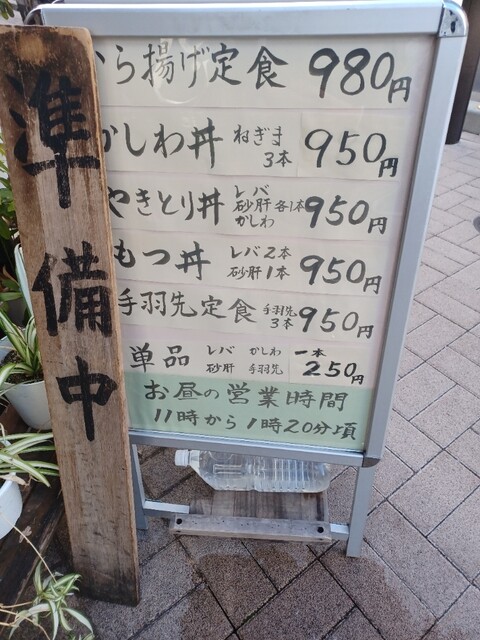 準備中
ら揚げ定食 980円
かしわ丼 ねぎま 3本 950円
やきとり丼 レバ 砂肝 かしわ 各1本 950円
もつ丼 レバ2本 砂肝1本 950円
手羽先定食 手羽先 3本 950円
単品 レバ かしわ 砂肝 手羽先 一本 250円
お昼の営業時間
11時から1時20分頃